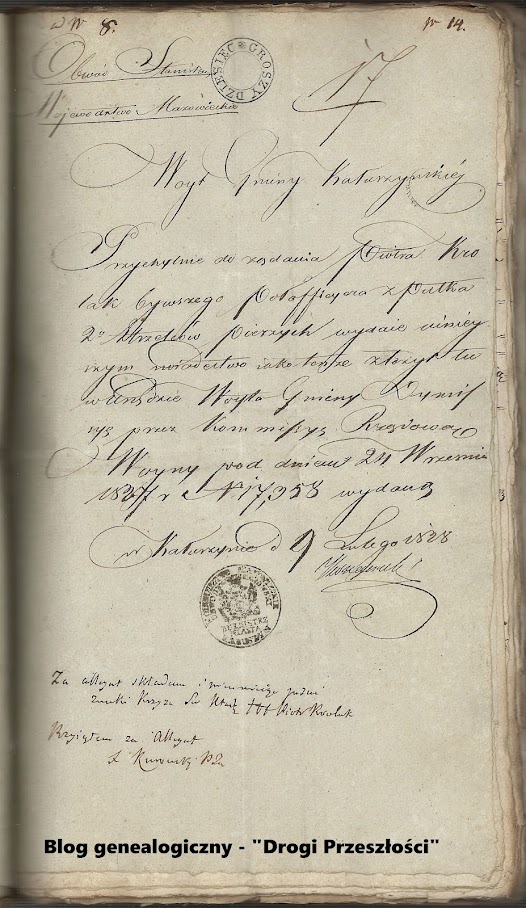 N 8.
N 14.
Obwód Stanisła
Województwo Mazowieckie
DZIESIĘC GROSZY
17
Woyt Gminy Katarzyńskiéj
Przychylnie do żądania Piotra Kro
lak bywszego Podofficyera z Pułka
2o Strzelców Pieszych wydaie niniey
szym swiadectwo iako tenże złożył tu
w Urzędzie Woyta Gminy Dymis
syą przez Kommissyą Rządową
Woyny pod dniem 24 Września
1827 r N 17,358 wydaną
w Katarzynie d 9 Lutego 1828
Za allegat składam i
znaki Krzyża Sw +++ Piotr Krolak
Przyiąłem za Allegat
Blog genealogiczny - "Drogi Przeszłości"